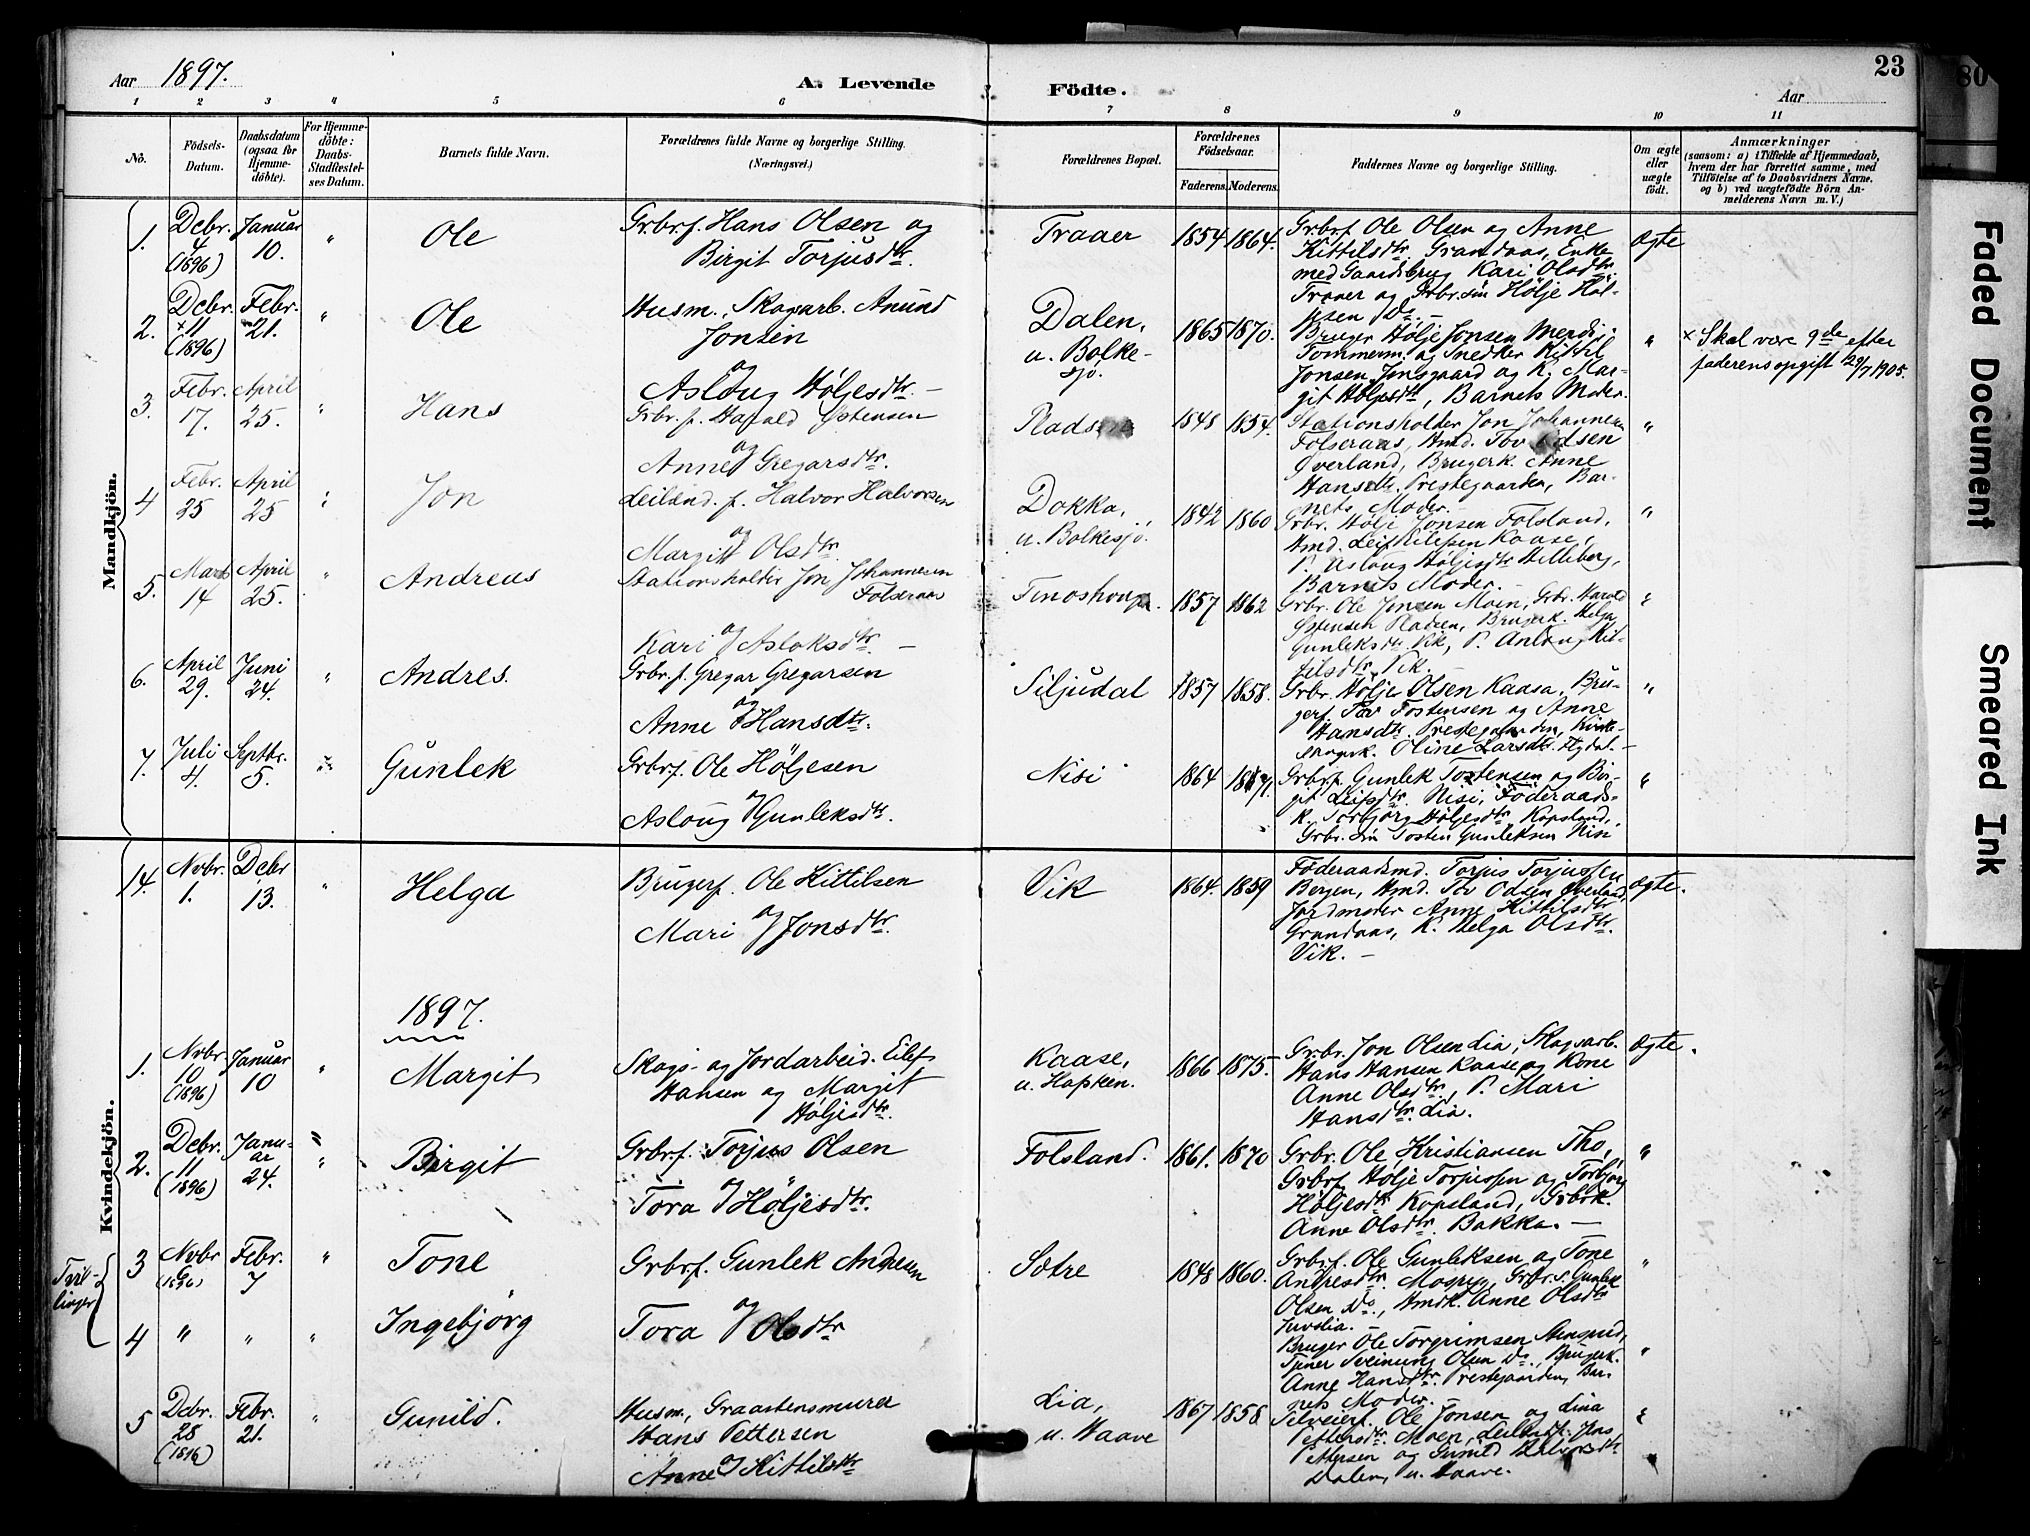 Aar 1897.
A. Levende Födte.
23
80
Aar
1 2 3 4 5 6 7 8 9 10 11
No.
Födsels-Datum.
Daabsdatum (ogsaa for Hjemme-döbte).
For Hjemme-döbte: Daabs-Stadfæstel-ses Datum.
Barnets fulde Navn.
Forældrenes fulde Navne og borgerlige Stilling. (Næringsvei.)
Forældrenes Bopæl.
Forældrenes Födselsaar.
Faderens. Moderens.
Faddernes Navne og borgerlige Stilling.
Om ægte eller uægte födt.
Anmærkninger
(saasom: a) i Tilfælde af Hjemmedaab, hvem der har forrettet samme, med Tilföielse af to Daabsvidners Navne, og b) ved uægtefödte Börn An-melderens Navn m. V.)
Mandkjön.
1. Debr. 4 (1896) Januar 10. " Ole
Grbrf. Hans Olsen og
Birgit Torjusdtr.
Traaer 1854 1864.
Grbrf Ole Olsen og Anne
Kittilsdtr. Grandaas, Enke
med Gaardsbrug Kari Olsdtr.
Traaer og Grbr.sön Hölje Höl-
jesen Do. –
ægte
2. Debr. × 11 (1896) Febr. 21. " Ole
Husm., Skogarb. Anund
Jonsen
og
Aslaug Höljesdtr. –
Dalen,
u. Bolke-
sjö.
1865 1870.
Bruger Hölje Jonsen
Tömmerm. og Snedker Kittil
Jonsen, Jonsgaard og K. Mar-
git Höljesdtr, Barnets Moder.
"
× Skal være 9de efter
faderens opgift 29/7 1905.
3. Febr. 17. April 25. " Hans
Grbr. f. Harald Östensen
og
Anne Gregarsdtr.
Pladsen 1848 1854.
Stationsholder Jon Johannesen
Folseraas, Hmd. Tov Odsen
Överland, Brugerk. Anne
Hansdtr. Prestegaarden, Bar-
nets Moder. –
"
4 Febr. 25 April 25 " Jon
Leilænd. f. Halvor Halvorsen
og
Margit Olsdtr.
Dokka,
u. Bolkesjö.
1842 1860
Grbr. Hölje Jonsen Folsland,
Hmd. Leif Kaase,
P. Aslaug Höljesdtr Hilleberg,
Barnets Moder. –
"
5. Marts 14 April 25. " Andreas
Stationsholder Jon Johannesen
Folseraas
og
Kari Aslaksdtr. –
Tinoshougen. 1857 1862
Grbr. Ole Jonsen Moen, Grbr. Harald
Östensen Pladsen, Brugerk. Helga
Gunleksdtr Vik, P. Anlaug Kit-
tilsdtr. Vik. –
"
6. April 29. Juni 24. " Andres.
Grbr. f. Gregar Gregarsen
og
Anne Hansdtr.
Siljudal 1857 1858.
Grbr. Hölje Olsen Kaasa, Bru-
gerf. Tov Tostensen og Anne
Hansdtr. Prestegaarden, Kirke-
sangerk. Oline Larsdtr. Flydal. –
"
7. Juli 4. Septbr. 5. " Gunlek
Grbrf. Ole Höljesen
og
Aslaug Gunleksdtr.
Nisi 1864 1871.
Grbrf. Gunlek Tostensen og Bir-
git Leifsdtr. Nisi, Föderaads-
k. Torbjörg Höljesdtr Kopsland,
Grbr. sön Tosten Gunleksen Nisi
"
Kvindekjön.
14. Novbr. 1. Debr 13. " Helga
Brugerf. Ole Kittilsen
og
Mari Jonsdtr.
Vik 1864. 1859
Föderaadsmd. Torjus Torjussen
Bergen, Hmd. Tov Odsen Överland,
Jordmoder Anne Kittilsdtr
Grandaas, K. Helga Olsdtr.
Vik. –
ægte.
1897.
1. Novbr. 10 (1896) Januar 10 " Margit
Skogs- og Jordarbeid. Eilef
Hansen og Margit
Höljesdtr.
Kaase,
u. Hapteen.
1866 1875.
Grbr. Jon Olsen Lia, Skogarb.
Hans Hansen Kaase og Kone
Anne Olsdtr, P. Mari
Hansdtr. Lia.
ægte.
2. Debr. 11 (1896) Janu-
ar 24. " Birgit
Grbrf. Torjus Olsen
og
Tora Höljesdtr.
Folsland. 1861. 1870
Grbr. Ole Kristiansen Tho,
Grbrf Hölje Torjussen og Torbjörg
Höljesdtr Kopsland, Grbrk.
Anne Olsdtr. Bakka. –
"
Tvil-
linger
3 Novbr (1896) Febr. 7 " Tone
Grbrf. Gunlek Andresen
og
Tora Olsdtr
Sætre 1848 1860.
Grbrf. Ole Gunleksen og Tone
Andresdtr. Mogen, Grbr. s. Gunlek
Olsen Do., Hmdk. Anne Olsdtr
Juvslia. –
"
4 " " " Ingebjörg
Bruger Ole Torgrimsen Stensrud,
Tjener Sveinung Olsen Do., Brugerk.
Anne Hansdtr. Prestegaarden, Bar-
nets Moder.
"
5 Debr. 28 (1896) Febr. 21. " Gunild.
Husm., Graastensmurer
Hans Pettersen
og
Anne Kittilsdtr
Lia,
u. Haave
1867 1858
Selveierf. Ole Jonsen og Lina
Pettersdtr. Moen, Leilændf. Jens
Pettersen og Gunild Halvorsdtr
Dalen, u. Haave.
"
Faded Document
Smeared Ink